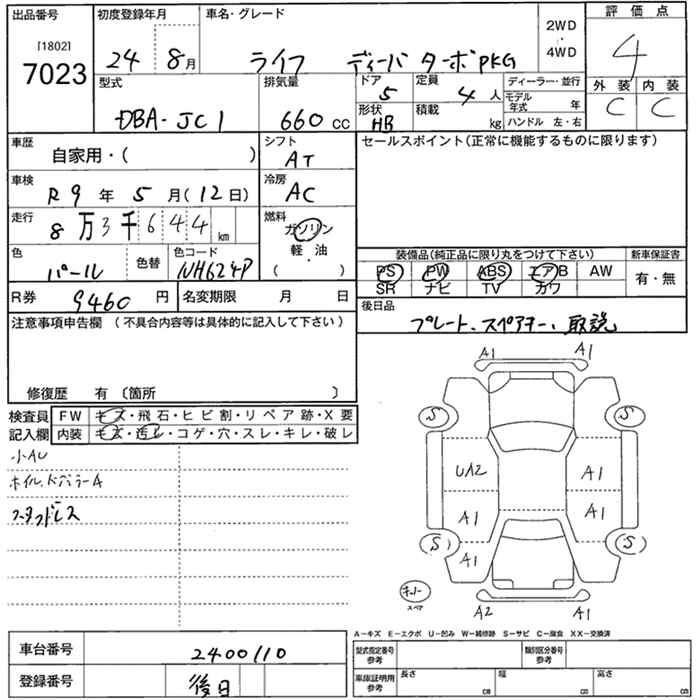 出品番号 初度登録年月 車名・グレード 2WD・4WD 評価点
[1802]
7023 24年 8月 ライフ ディーバ ターボPKG 4
型式 排気量 ドア 5 定員 4人 ディーラー・並行 外装 内装
モデル年式 年 C C
DBA-JC1 660cc 形状 HB 積載 kg ハンドル 左・右
車歴 自家用・( ) シフト AT セールスポイント(正常に機能するものに限ります)
車検 R9年 5月(12日) 冷房 AC
走行 8万3千644km 燃料 ガソリン
軽・油
( )
色 パール 色替 色コード NH624P 装備品(純正品に限り丸をつけて下さい) 新車保証書
PS PW ABS エアB AW 有・無
SR ナビ TV カワ
R券 9460円 名変期限 月 日 後日品
プレート、スペアキー、取説
注意事項申告欄 (不具合内容等は具体的に記入して下さい)
修復歴 有 〔箇所 〕
検査員 FW キズ・飛石・ヒビ割・リペア跡・X要
記入欄 内装 キズ・汚レ・コゲ・穴・スレ・キレ・破レ
小AU
ホイル、ドアミラーA
スタッドレス
A1 A1
S S
UA2 A1
A1 A1
(S) (S)
A1
スペア
A2 A1
A-キズ E-エクボ U-凹み W-補修跡 S-サビ C-腐食 XX-交換済
車台番号 2400110 型式指定番号 参考 類別区分番号 参考
登録番号 後日 車庫証明用 参考 長さ cm 幅 cm 高さ cm